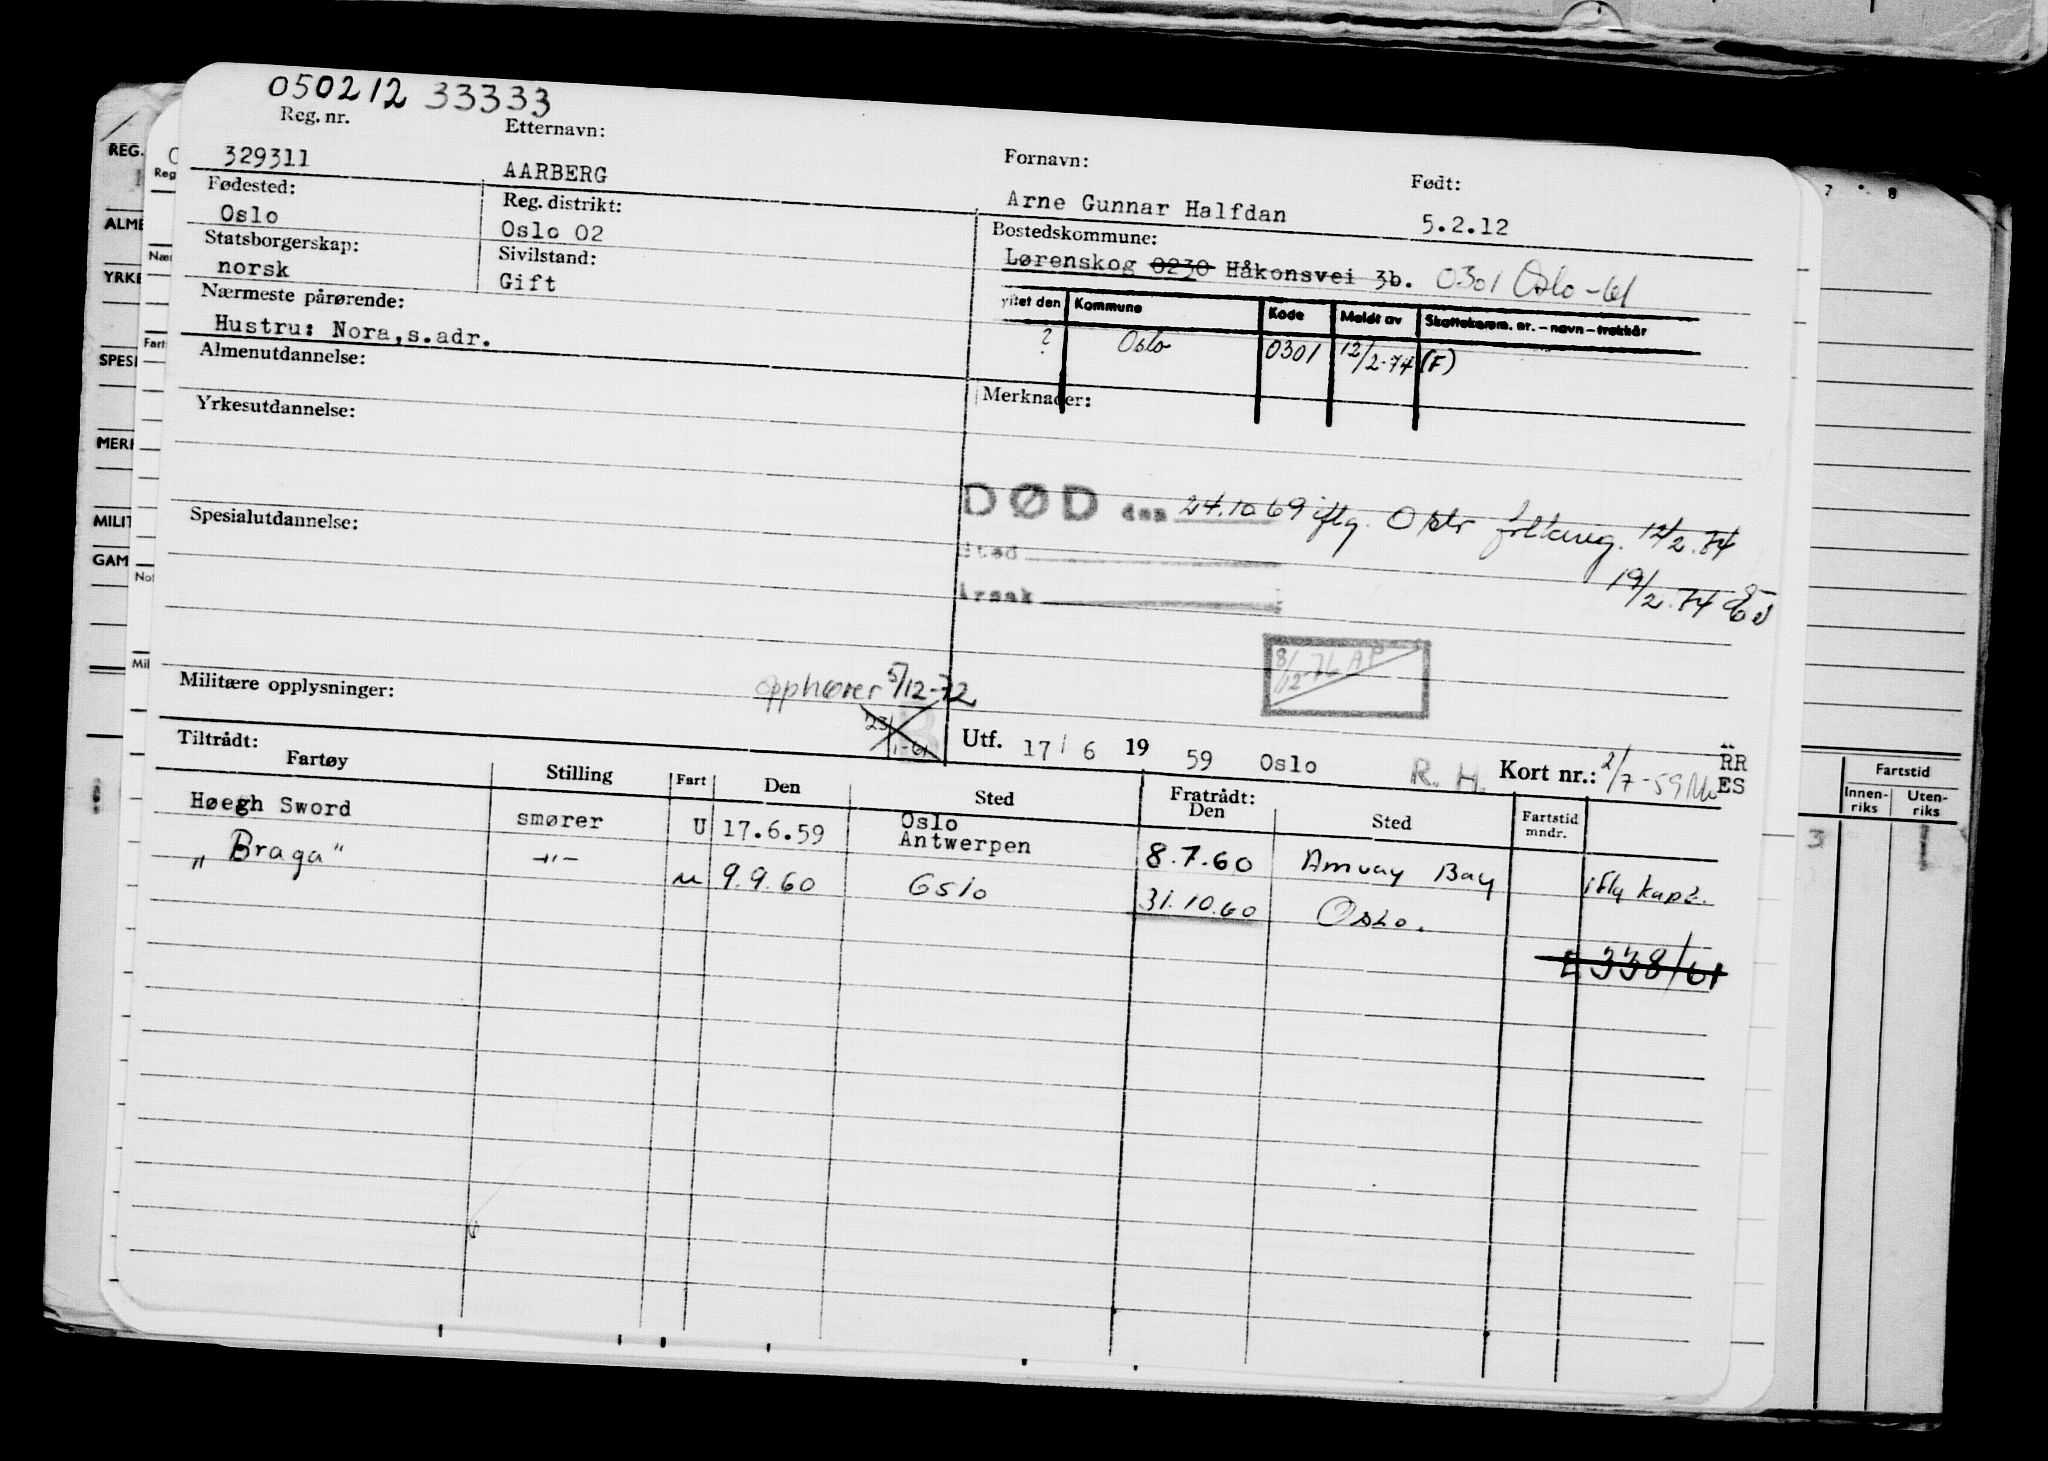 050212 33333
Reg. nr. Etternavn: Fornavn: Født:
329311 AARBERG Arne Gunnar Halfdan 5.2.12
Fødested: Reg. distrikt: Bostedskommune:
Oslo Oslo 02 Lørenskog 0230 Håkonsvei 3b. 0301 Oslo -61
Statsborgerskap: Sivilstand:
norsk Gift
Nærmeste pårørende:
Hustru: Nora,s.adr.
ytet den Kommune Kode Meldt av Skattekomm. nr. – navn – trekkår
? Oslo 0301 12/2-74 (F)
Almenutdannelse:
Merknader:
Yrkesutdannelse:
DØD den 24.10.69 iflg. Oslo 12/2.74
Sted
Årsak
19/2.74
Spesialutdannelse:
8/12-76 AP
Militære opplysninger:
opphører 5/12-72
23/1-61
Utf. 17/ 6 19 59 Oslo R. H. Kort nr.: 2/7-59
RR
ES
Tiltrådt: Fratrådt:
Fartøy Stilling Fart Den Sted Den Sted Fartstid mndr.
Høegh Sword smører U 17.6.59 Oslo Antwerpen 8.7.60 Amuay Bay iflg kapt.
„Braga" -"- u 9.9.60 Oslo 31.10.60 Oslo.
338/61
REG.
ALME
YRKE
SPESI
MERK
MILIT
GAM
Reg
Fart
Mil
7 8
Fartstid
Innenriks Utenriks
3